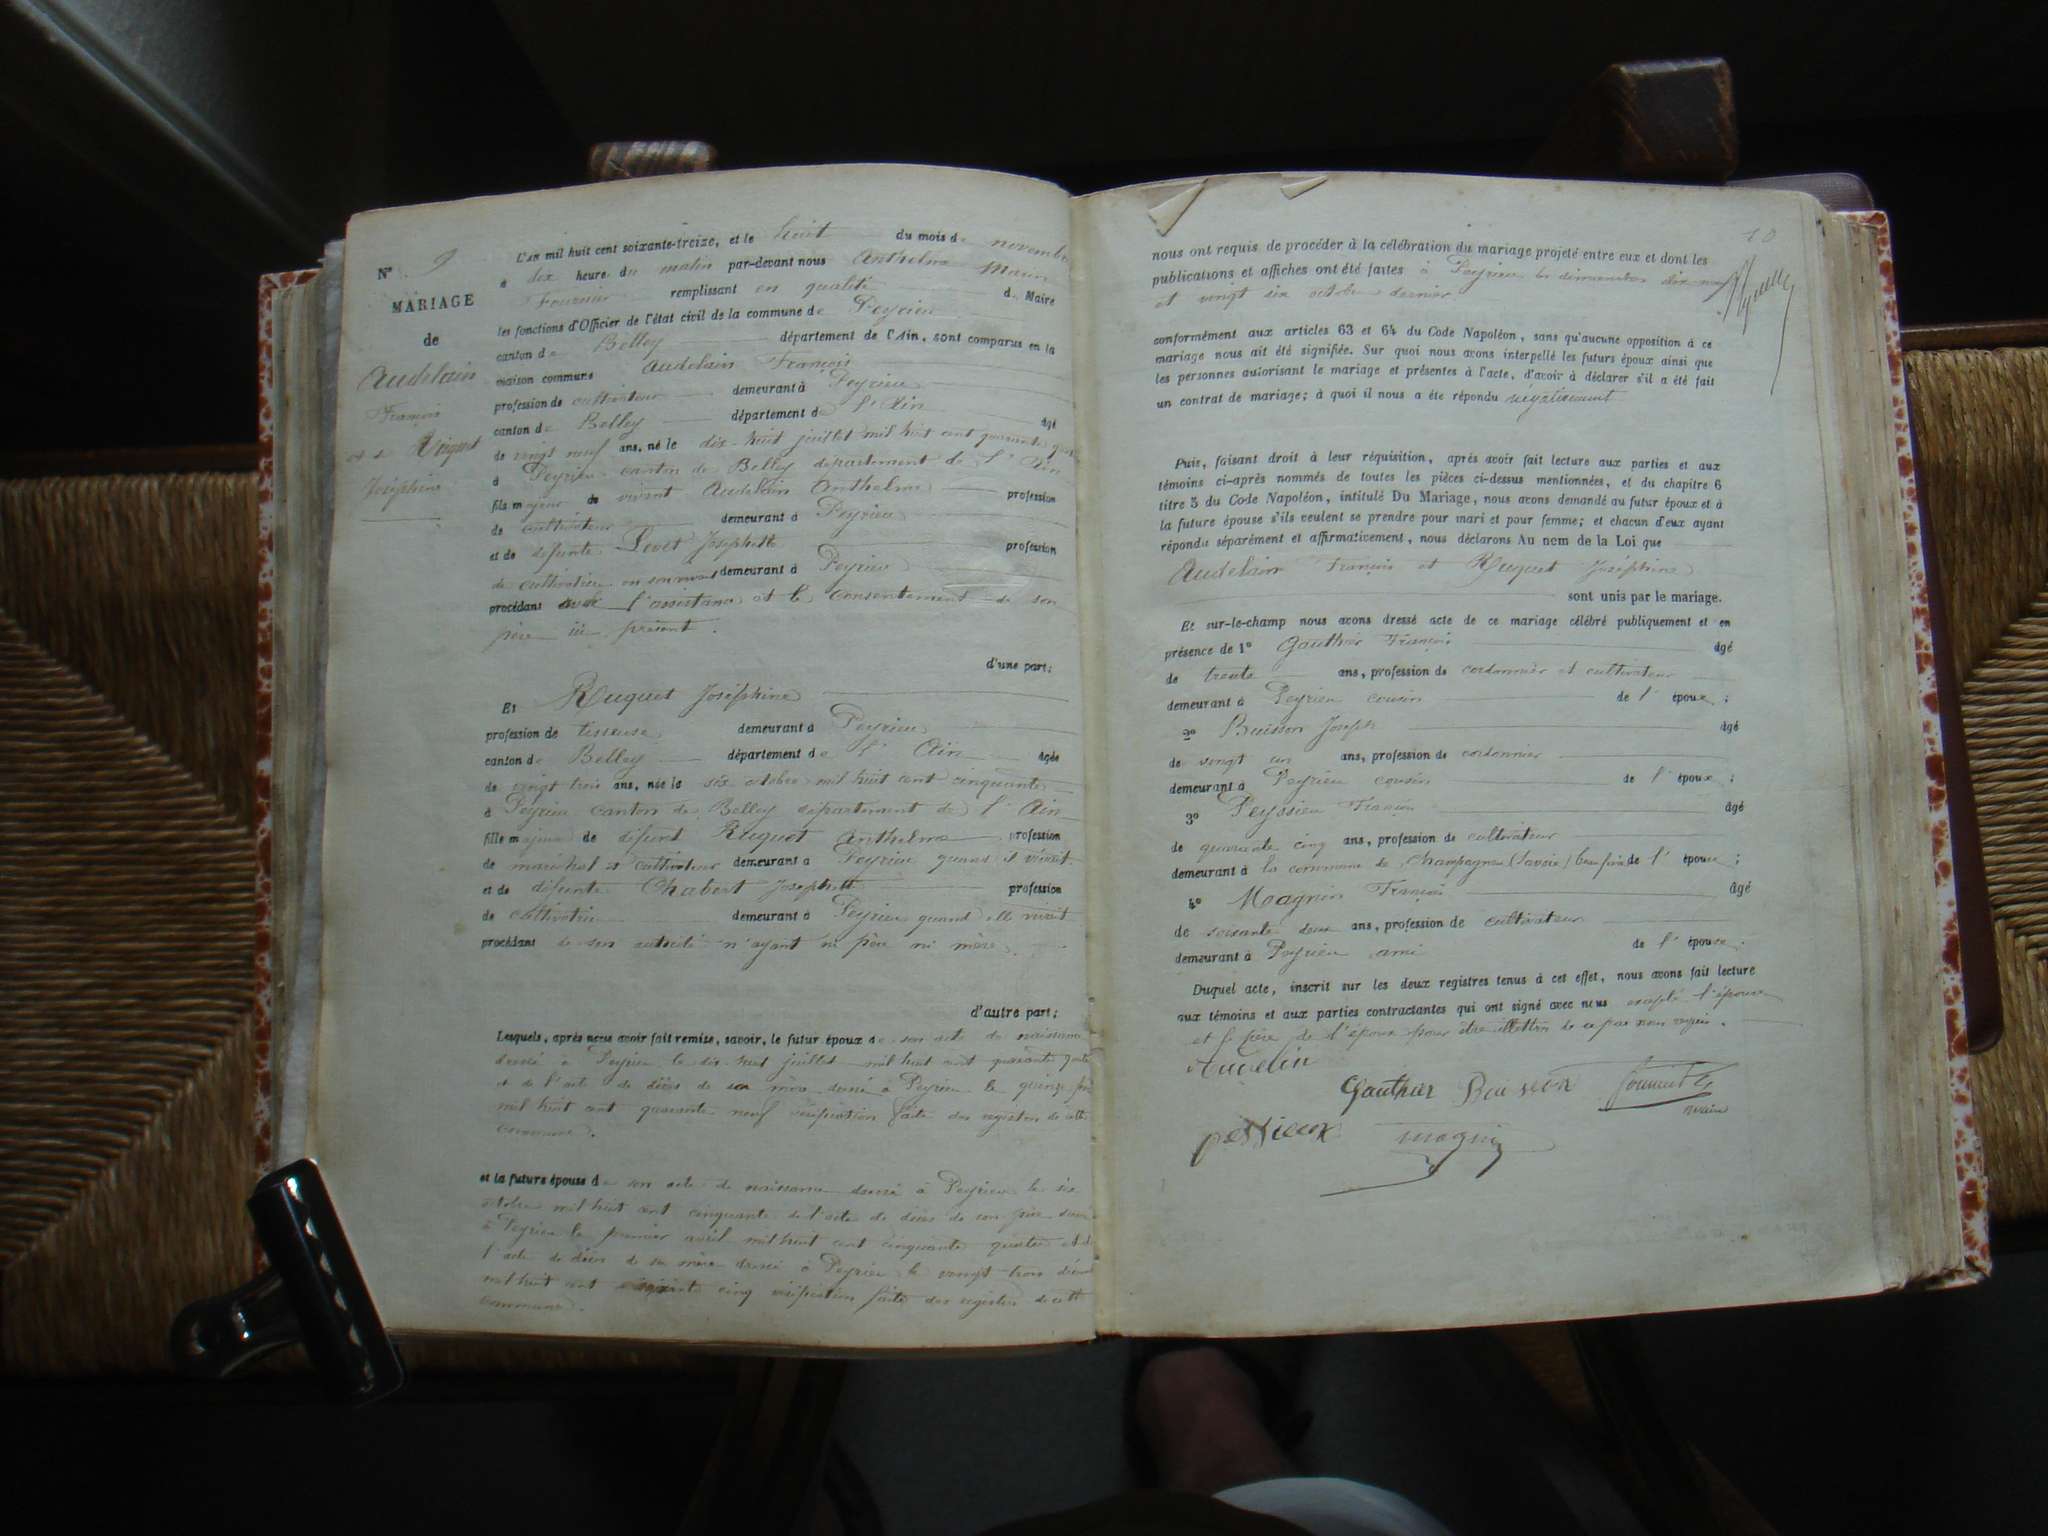 N° 9
MARIAGE
de
Audelain
François
et de Ruguet
Joséphine
L'an mil huit cent soixante-treize, et le huit du mois de novembre
à dix heure du matin par-devant nous Anthelme Marin
Fournier remplissant en qualité de Maire
les fonctions d'Officier de l'état civil de la commune de Peyrieu
canton de Belley département de l'Ain, sont comparus en la
maison commune Audelain François
profession de cultivateur demeurant à Peyrieu
canton de Belley département de l'Ain âgé
de vingt neuf ans, né le dix-huit juillet mil huit cent quarante quatre
à Peyrieu canton de Belley département de l'Ain
fils majeur de vivant Audelain Anthelme profession
de cultivateur demeurant à Peyrieu
et de défunte Josephte profession
de cultivatrice en son vivant demeurant à Peyrieu
procédant avec l'assistance et le consentement de son
père ici présent.
d'une part;
Et Ruguet Joséphine
profession de tisseuse demeurant à Peyrieu
canton de Belley département de l'Ain âgée
de vingt trois ans, née le six octobre mil huit cent cinquante
à Peyrieu canton de Belley département de l'Ain
fille majeure de défunt Ruguet Anthelme profession
de maréchal et cultivateur demeurant à Peyrieu quand il vivait
et de défunte Chabert Josephte profession
de cultivatrice demeurant à Peyrieu quand elle vivait
procédant de son autorité n'ayant ni père ni mère.
d'autre part;
Lesquels, après nous avoir fait remise, savoir, le futur époux de son acte de naissance
dressé à Peyrieu le dix-huit juillet mil huit cent quarante quatre
et de l'acte de décès de sa mère dressé à Peyrieu le quinze
mil huit cent quarante neuf vérification faite des registres de cette
commune.
et la future épouse de son acte de naissance dressé à Peyrieu le six
octobre mil huit cent cinquante de l'acte de décès de son père dressé
à Peyrieu le premier avril mil huit cent cinquante quatre et de
l'acte de décès de sa mère dressé à Peyrieu le vingt trois
mil huit cent cinq vérification faite des registres de cette
commune.
10
nous ont requis de procéder à la célébration du mariage projeté entre eux et dont les
publications et affiches ont été faites à Peyrieu les dimanches dix-neuf
et vingt six octobre dernier
conformément aux articles 63 et 64 du Code Napoléon, sans qu'aucune opposition à ce
mariage nous ait été signifiée. Sur quoi nous avons interpellé les futurs époux ainsi que
les personnes autorisant le mariage et présentes à l'acte, d'avoir à déclarer s'il a été fait
un contrat de mariage; à quoi il nous a été répondu négativement
Puis, faisant droit à leur réquisition, après avoir fait lecture aux parties et aux
témoins ci-après nommés de toutes les pièces ci-dessus mentionnées, et du chapitre 6
titre 5 du Code Napoléon, intitulé Du Mariage, nous avons demandé au futur époux et à
la future épouse s'ils veulent se prendre pour mari et pour femme; et chacun d'eux ayant
répondu séparément et affirmativement, nous déclarons Au nom de la Loi que
Audelain François et Ruguet Joséphine
sont unis par le mariage.
Et sur-le-champ nous avons dressé acte de ce mariage célébré publiquement et en
présence de 1° Gauthier François âgé
de trente ans, profession de cordonnier et cultivateur
demeurant à Peyrieu cousin de l'époux;
2° Buisson Joseph âgé
de vingt un ans, profession de cordonnier
demeurant à Peyrieu cousin de l'époux;
3° Peyssieu François âgé
de quarante cinq ans, profession de cultivateur
demeurant à la commune de Champagneu (Savoie) beau frère de l'épouse;
4° Magnin François âgé
de soixante deux ans, profession de cultivateur
demeurant à Peyrieu ami de l'épouse.
Duquel acte, inscrit sur les deux registres tenus à cet effet, nous avons fait lecture
aux témoins et aux parties contractantes qui ont signé avec nous excepté l'épouse
et le père de l'époux pour être illettrés de ce par nous requis.
Audelin
Gauthier Buisson Fournier
maire
pessieux magnin